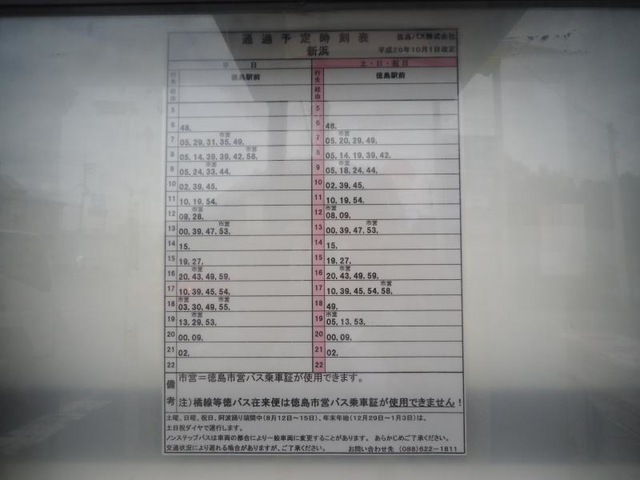 通過予定時刻表 徳島バス株式会社
新浜 平成26年10月1日改正
平 日 土・日・祝日
行先 徳島駅前 行先 徳島駅前
経由 経由
5 5
6 48, 6 46,
市営 市営
7 05, 29, 31, 35, 49, 7 05, 20, 29, 49,
市営
8 05, 14, 39, 39, 42, 58, 8 05, 14, 19, 39, 42,
9 05, 24, 33, 44, 9 05, 18, 24, 44,
10 02, 39, 45, 10 02, 39, 45,
11 10, 19, 54, 11 10, 19, 54,
市営 市営
12 09, 28, 12 08, 09,
市営 市営
13 00, 39, 47, 53, 13 00, 39, 47, 53,
14 15, 14 15,
15 19, 27, 15 19, 27,
市営 市営
16 20, 43, 49, 59, 16 20, 43, 49, 59,
17 10, 39, 45, 54, 17 10, 39, 45, 54, 58,
市営 市営
18 03, 30, 49, 55, 18 49,
市営 市営
19 13, 29, 53, 19 05, 13, 53,
20 00, 09, 20 00, 09,
21 02, 21 02,
22 22
備考 市営=徳島市営バス乗車証が使用できます。
注)橘線等徳バス在来便は徳島市営バス乗車証が使用できません!
土曜、日曜、祝日、阿波踊り期間中(8月12日~15日)、年末年始(12月29日~1月3日)は、
土日祝ダイヤで運行します。
ノンステップバスは車両の都合により一般車両に変更することがあります。 あらかじめご了承ください。
交通状況により遅れる場合がありますが、ご了承ください。 お問い合わせ先 (088)622-1811